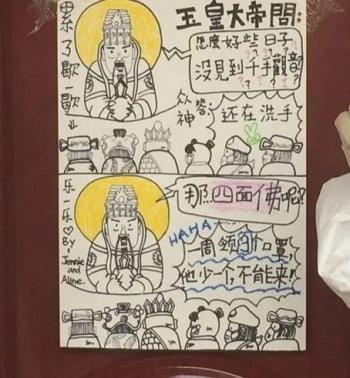 累了歇一歇
玉皇大帝問:
怎麼好些日子
沒見到千手觀音?
众神答:
还在洗手
乐一乐
By
Jennie
and
Aline.
那四面佛呢?
HAHA
一周领3个口罩,
他少一个,不能来!